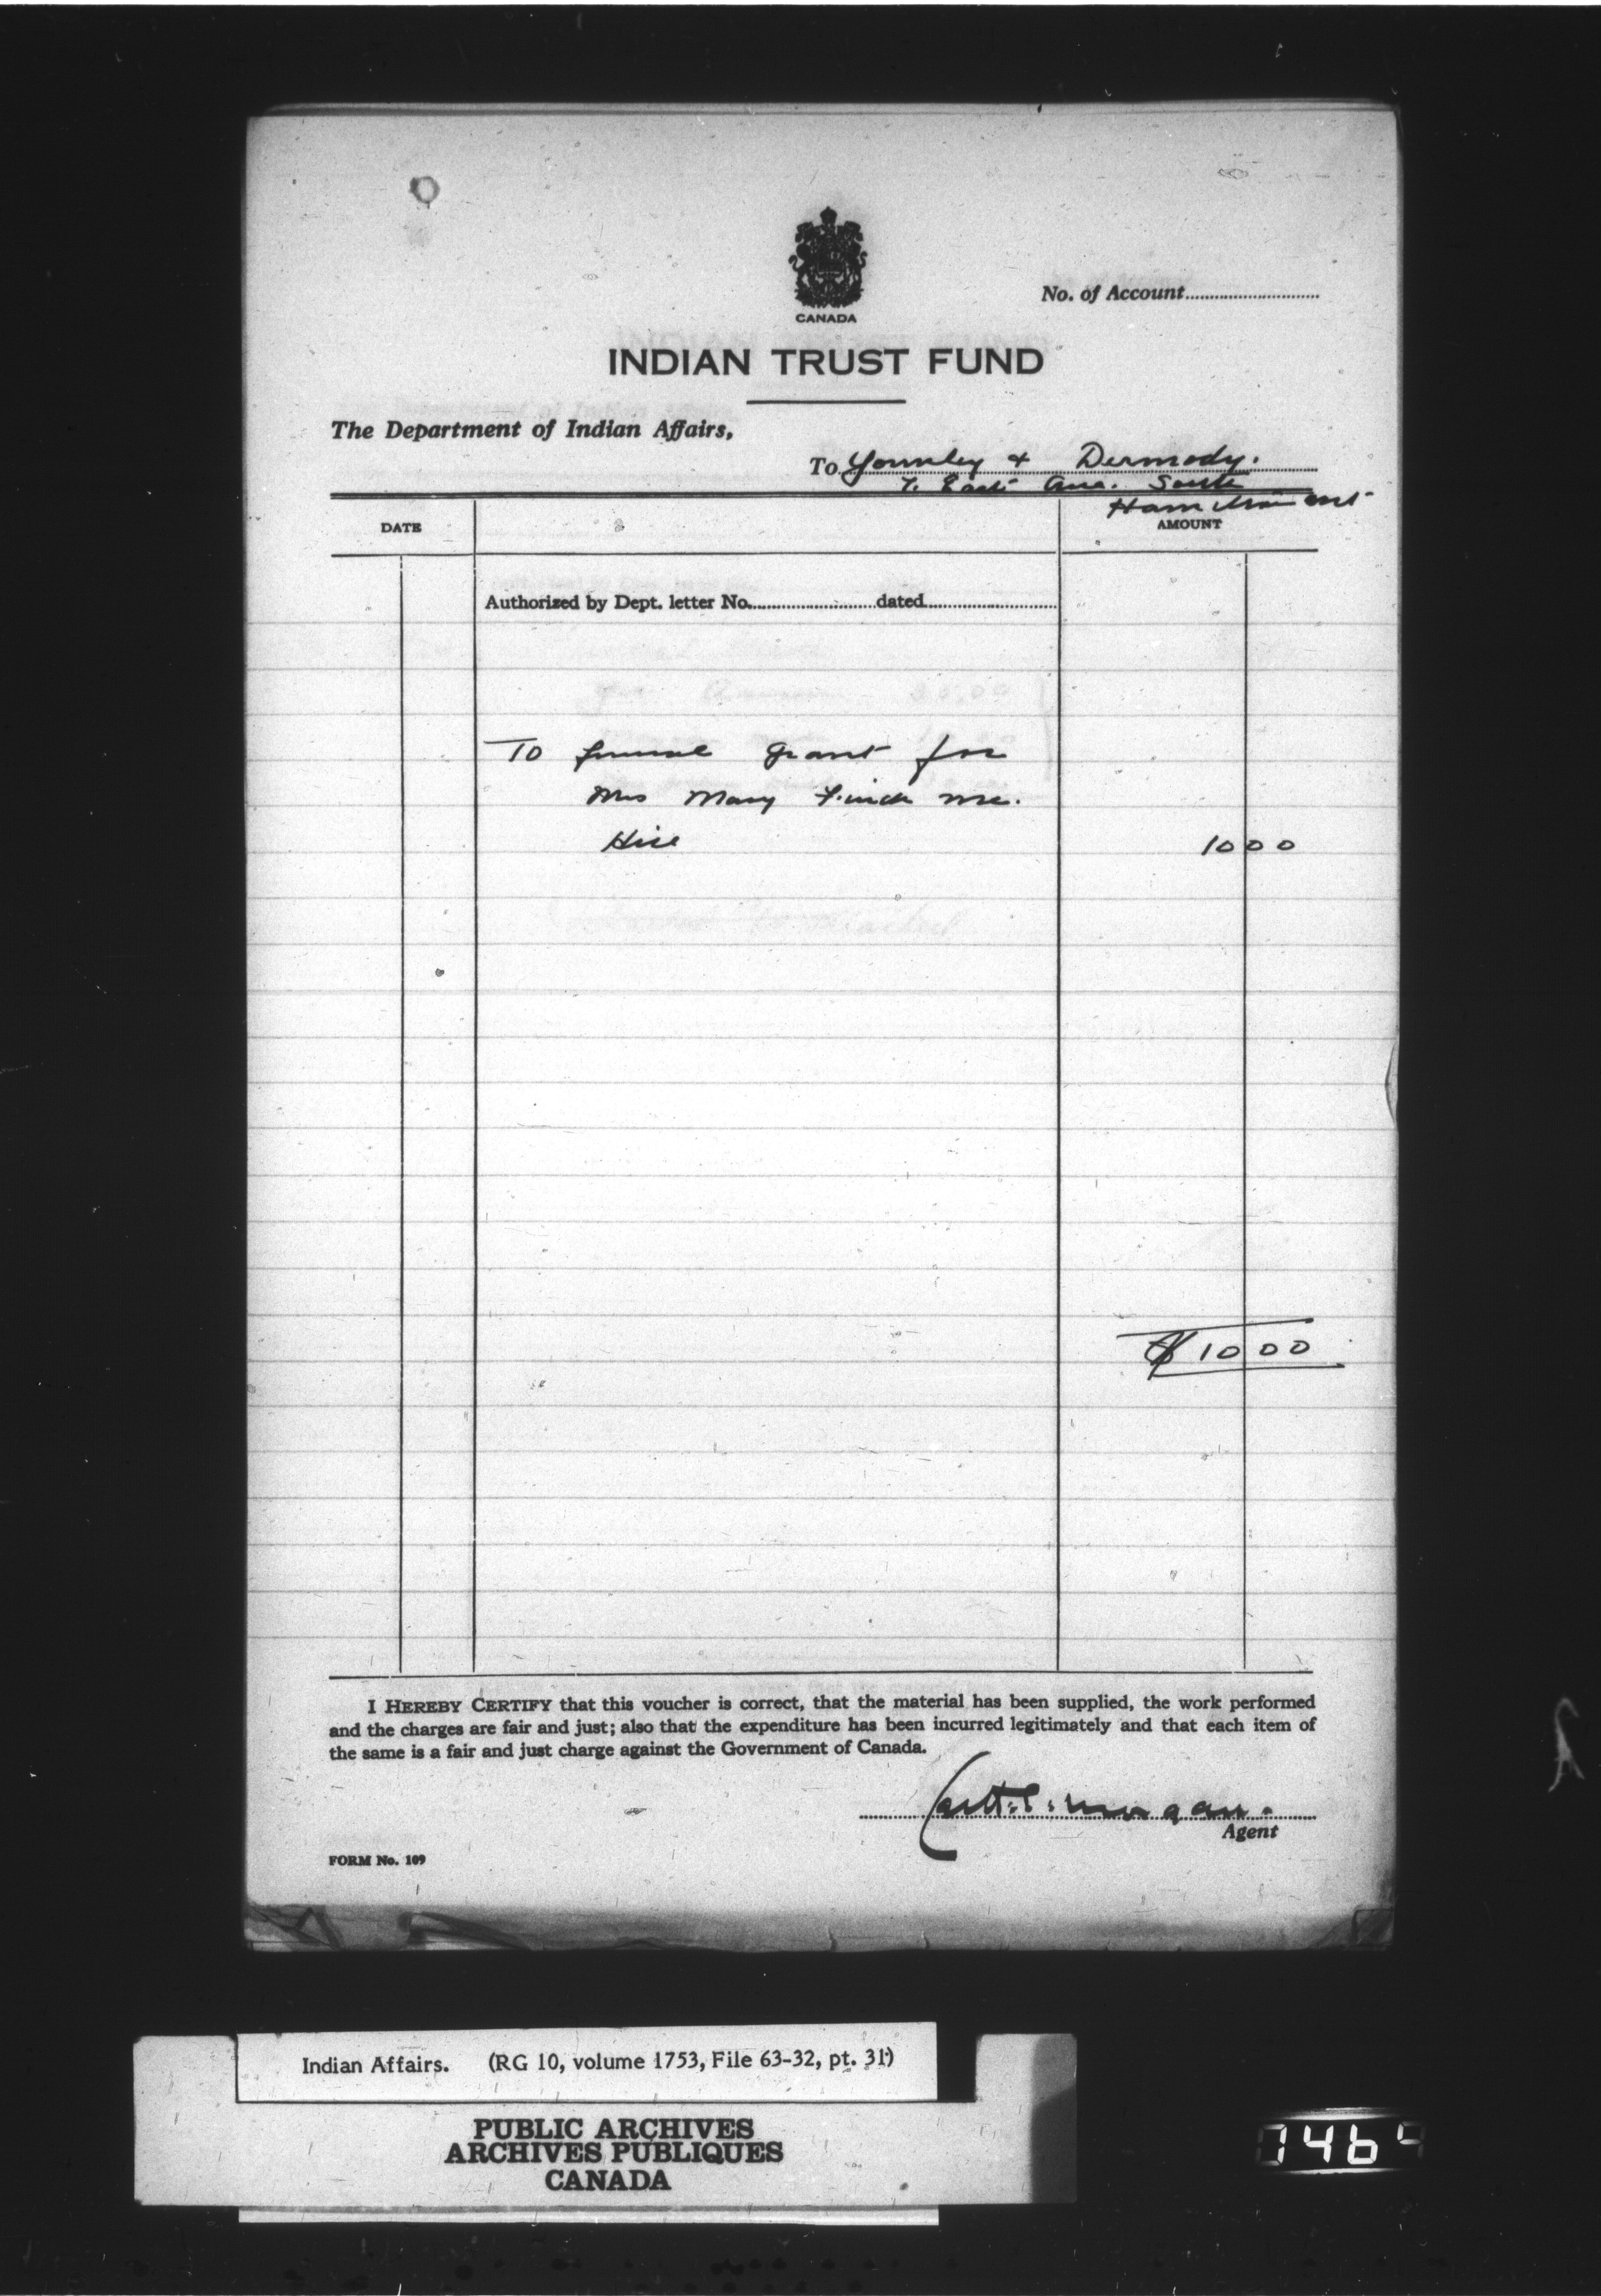 No. of Account
CANADA
INDIAN TRUST FUND
The Department of Indian Affairs,
To & Dermody.
7. East Ave. South
Hamilton Ont
DATE
AMOUNT
Authorized by Dept. letter No. dated
To funeral grant for
Mrs Mary Finch nee.
Hill
10 00
$10 00
I HEREBY CERTIFY that this voucher is correct, that the material has been supplied, the work performed
and the charges are fair and just; also that the expenditure has been incurred legitimately and that each item of
the same is a fair and just charge against the Government of Canada.
Morgan.
Agent
FORM No. 109
Indian Affairs. (RG 10, volume 1753, File 63-32, pt. 31)
PUBLIC ARCHIVES
ARCHIVES PUBLIQUES
CANADA